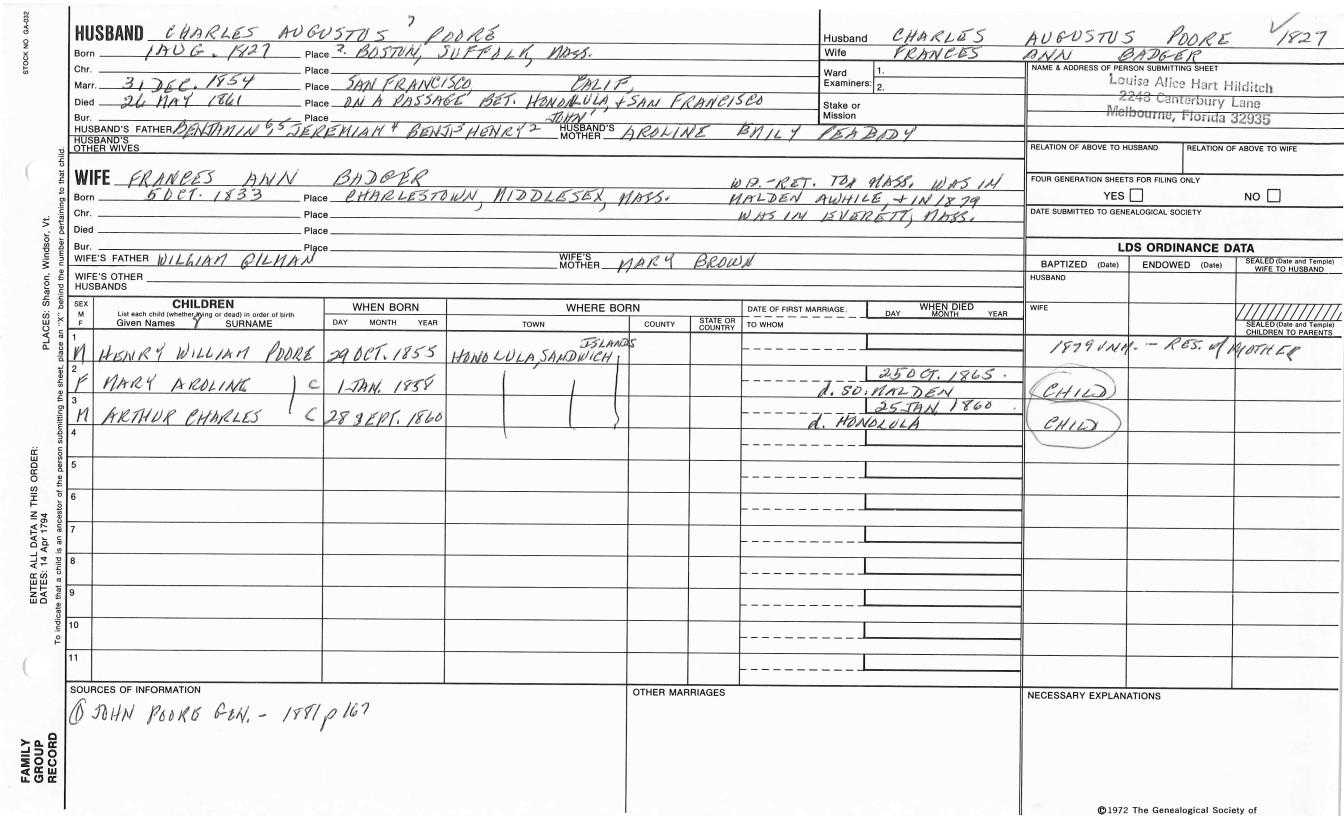 STOCK NO. GA-032
HUSBAND CHARLES AUGUSTUS 7 POORE
Born 1 AUG. 1827 Place ?. BOSTON, SUFFOLK, MASS.
Chr. Place
Marr. 31 DEC. 1854 Place SAN FRANCISCO, CALIF,
Died 26 MAY 1861 Place ON A PASSAGE BET. HONOLULA, + SAN FRANCISCO
Bur. Place
HUSBAND'S FATHER BENJAMIN 6, 5 JEREMIAH 4 BENJ 3 HENRY 2 JOHN 1 HUSBAND'S MOTHER AROLINE EMILY PEABODY
HUSBAND'S OTHER WIVES
Husband CHARLES AUGUSTUS POORE ✓1827
Wife FRANCES ANN BADGER
Ward Examiners: 1.
2.
Stake or Mission
NAME & ADDRESS OF PERSON SUBMITTING SHEET
Louise Alice Hart Hilditch
2248 Canterbury Lane
Melbourne, Florida 32935
RELATION OF ABOVE TO HUSBAND RELATION OF ABOVE TO WIFE
FOUR GENERATION SHEETS FOR FILING ONLY
YES NO
DATE SUBMITTED TO GENEALOGICAL SOCIETY
WIFE FRANCES ANN BADGER
Born 5 OCT. 1833 Place CHARLESTOWN, MIDDLESEX, MASS.
Chr. Place
Died Place
Bur. Place
WD.-RET. TO MASS. WAS IN
MALDEN AWHILE, + IN 1879
WAS IN EVERETT, MASS.
WIFE'S FATHER WILLIAM GILMAN WIFE'S MOTHER MARY BROWN
WIFE'S OTHER HUSBANDS
LDS ORDINANCE DATA
BAPTIZED (Date) ENDOWED (Date) SEALED (Date and Temple) WIFE TO HUSBAND
HUSBAND
WIFE
SEALED (Date and Temple) CHILDREN TO PARENTS
SEX M F CHILDREN
List each child (whether living or dead) in order of birth
Given Names 8 SURNAME
WHEN BORN
DAY MONTH YEAR
WHERE BORN
TOWN COUNTY STATE OR COUNTRY
DATE OF FIRST MARRIAGE
TO WHOM
WHEN DIED
DAY MONTH YEAR
1 M HENRY WILLIAM POORE 29 OCT. 1855 HONOLULA, SANDWICH ISLANDS 1879 UNM. - RES. of MOTHER
2 F MARY AROLINE C 1 JAN. 1858 25 OCT. 1865. d. SO. MALDEN CHILD
3 M ARTHUR CHARLES C 28 SEPT. 1860 25 JAN. 1860. d. HONOLULA CHILD
4
5
6
7
8
9
10
11
SOURCES OF INFORMATION
① JOHN POORE GEN. - 1881 p 167
OTHER MARRIAGES
NECESSARY EXPLANATIONS
©1972 The Genealogical Society of
PLACES: Sharon, Windsor, Vt.
ENTER ALL DATA IN THIS ORDER:
DATES: 14 Apr 1794
To indicate that a child is an ancestor of the person submitting the sheet, place an "X" behind the number pertaining to that child.
FAMILY
GROUP
RECORD